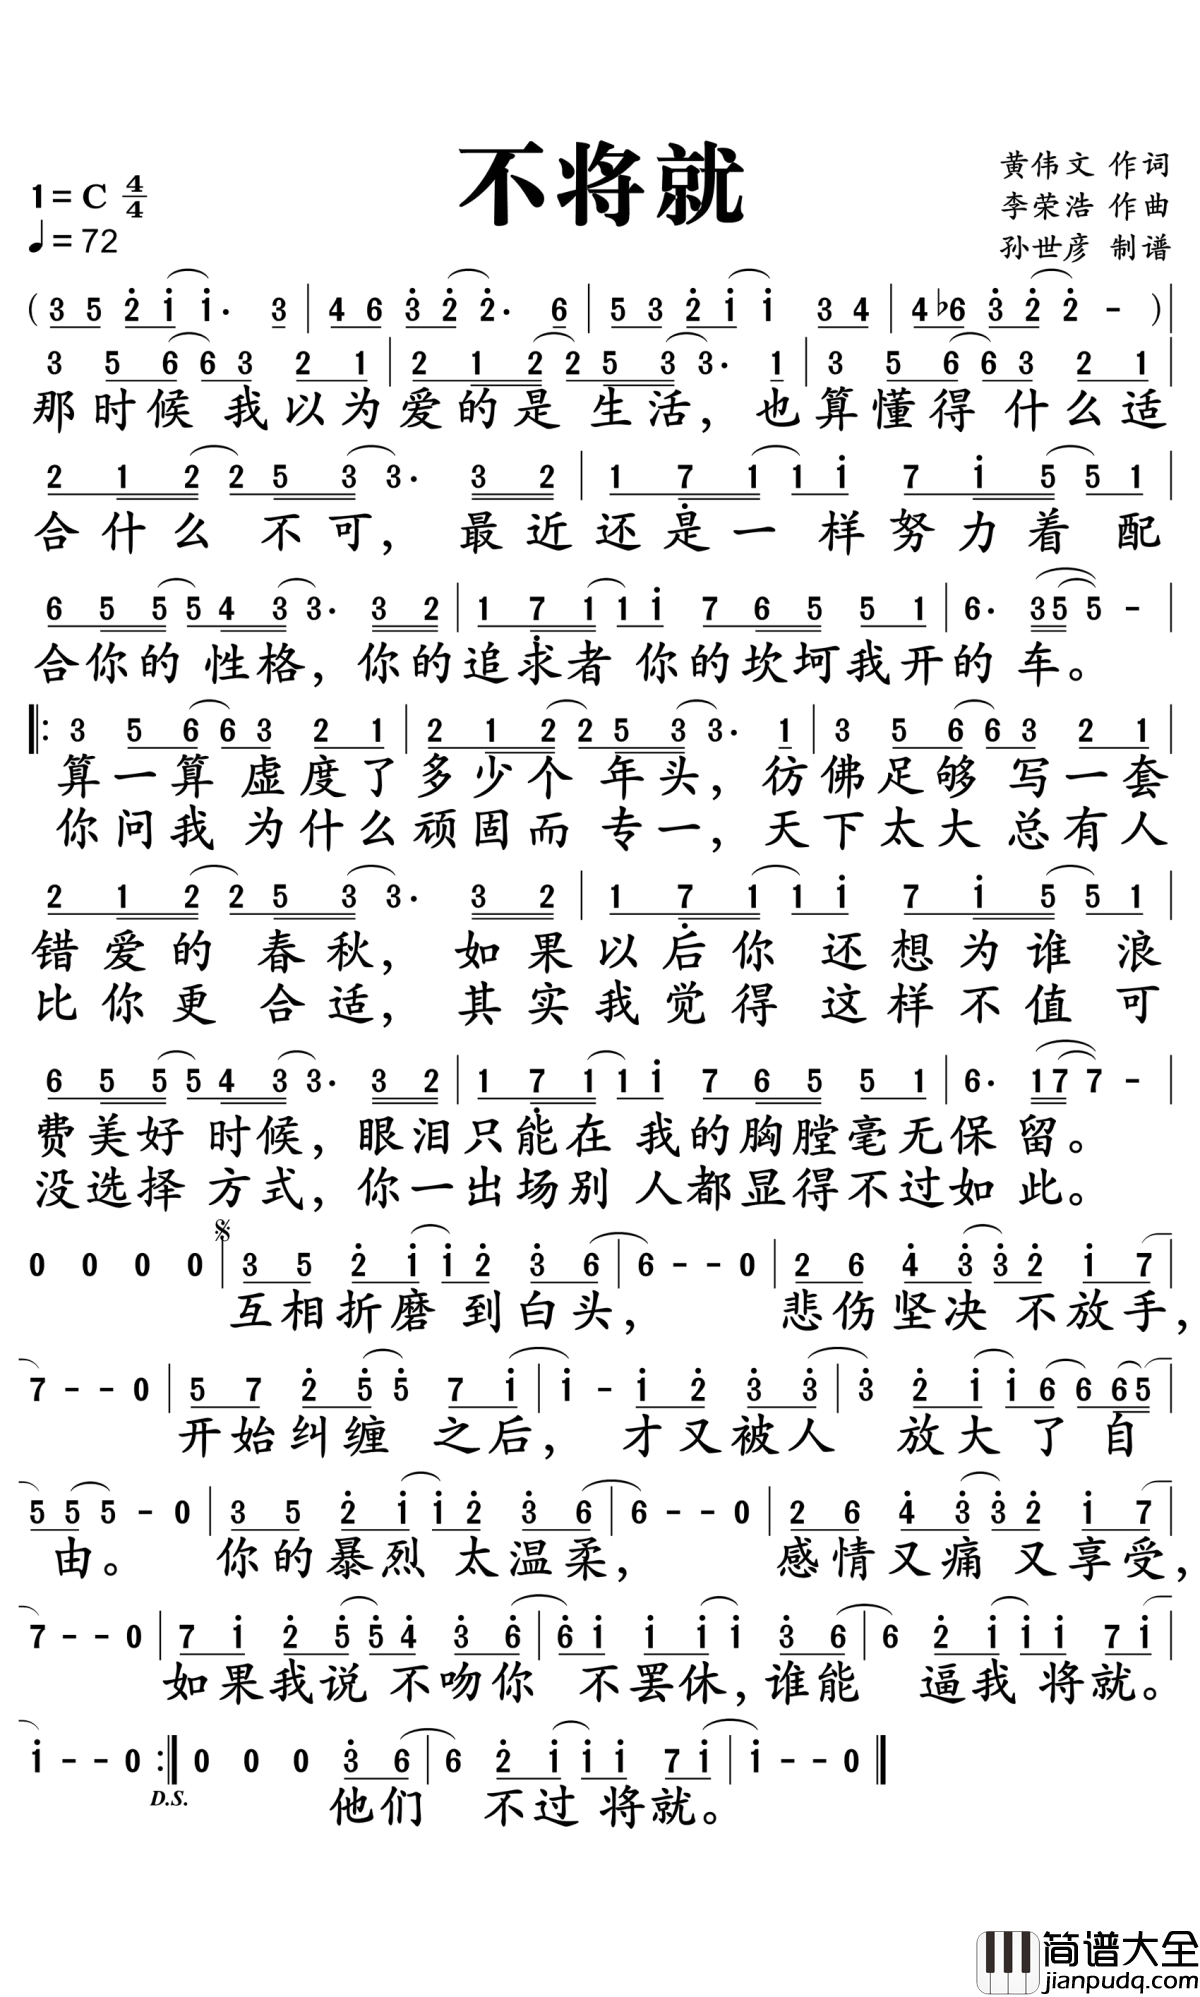 不将就
1=C 4/4
♩=72
黄伟文 作词
李荣浩 作曲
孙世彦 制谱
(3 5 2̇ i i· 3 | 4 6 3̇ 2̇ 2̇· 6 | 5 3 2̇ i i 3 4 | 4 ♭6 3̇ 2̇ 2̇ - )|
3 5 6 6 3 2 1 | 2 1 2 2 5 3 3· 1 | 3 5 6 6 3 2 1 |
那时候 我以为爱的是 生活，也算懂得 什么适
2 1 2 2 5 3 3· 3 2 | 1 7̣ 1 1 i 7 i 5 5 1 |
合什么 不可， 最近还是一 样努力着 配
6 5 5 5 4 3 3· 3 2 | 1 7̣ 1 1 i 7 6 5 5 1 | 6· 3 5 5 - |
合你的 性格，你的追求者 你的坎坷我开的 车。
‖: 3 5 6 6 3 2 1 | 2 1 2 2 5 3 3· 1 | 3 5 6 6 3 2 1 |
算一算 虚度了多少个 年头，彷佛足够 写一套
你问我 为什么顽固而 专一，天下太大 总有人
2 1 2 2 5 3 3· 3 2 | 1 7̣ 1 1 i 7 i 5 5 1 |
错爱的 春秋， 如果以后你 还想为谁 浪
比你更 合适， 其实我觉得 这样不值 可
6 5 5 5 4 3 3· 3 2 | 1 7̣ 1 1 i 7 6 5 5 1 | 6· 1 7 7 - |
费美好 时候，眼泪只能在 我的胸膛毫无保 留。
没选择 方式，你一出场别 人都显得不过如 此。
0 0 0 0 𝄋| 3 5 2̇ i i 2̇ 3̇ 6 | 6 - - 0 | 2 6 4̇ 3̇ 3̇ 2̇ i 7 |
互相折磨 到白头， 悲伤坚决 不放手，
7 - - 0 | 5 7 2̇ 5̇ 5̇ 7 i | i - i 2̇ 3̇ 3̇ | 3̇ 2̇ i i 6 6 6 5 |
开始纠缠 之后， 才又被人 放大了 自
5 5 5 - 0 | 3 5 2̇ i i 2̇ 3̇ 6 | 6 - - 0 | 2 6 4̇ 3̇ 3̇ 2̇ i 7 |
由。 你的暴烈 太温柔， 感情又痛 又享受，
7 - - 0 | 7 i 2̇ 5̇ 5̇ 4̇ 3̇ 6̇ | 6̇ i i i i 3̇ 6 | 6 2̇ i i i 7 i |
如果我说 不吻你 不罢休，谁能 逼我 将就。
i - - 0 :‖ 0 0 0 3̇ 6 | 6 2̇ i i i 7 i | i - - 0 ‖
D.S.
他们 不过 将就。
简谱大全
jianpudq.com